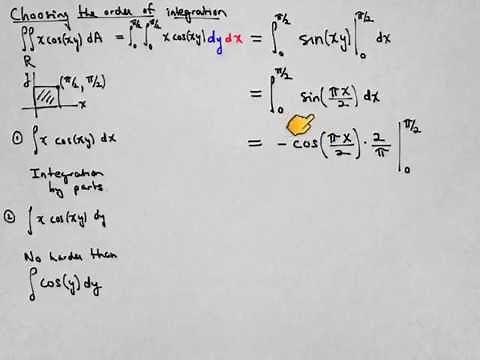 Choosing the order of integration
∬ x cos(xy) dA = ∫₀^{π/2} ∫₀^{π/2} x cos(xy) dy dx = ∫₀^{π/2} sin(xy) |₀^{π/2} dx
R
y (π/2, π/2)
x
= ∫₀^{π/2} sin(πx/2) dx
① ∫ x cos(xy) dx
= - cos(πx/2) · 2/π |₀^{π/2}
Integration
by parts
② ∫ x cos(xy) dy
No harder than
∫ cos(y) dy